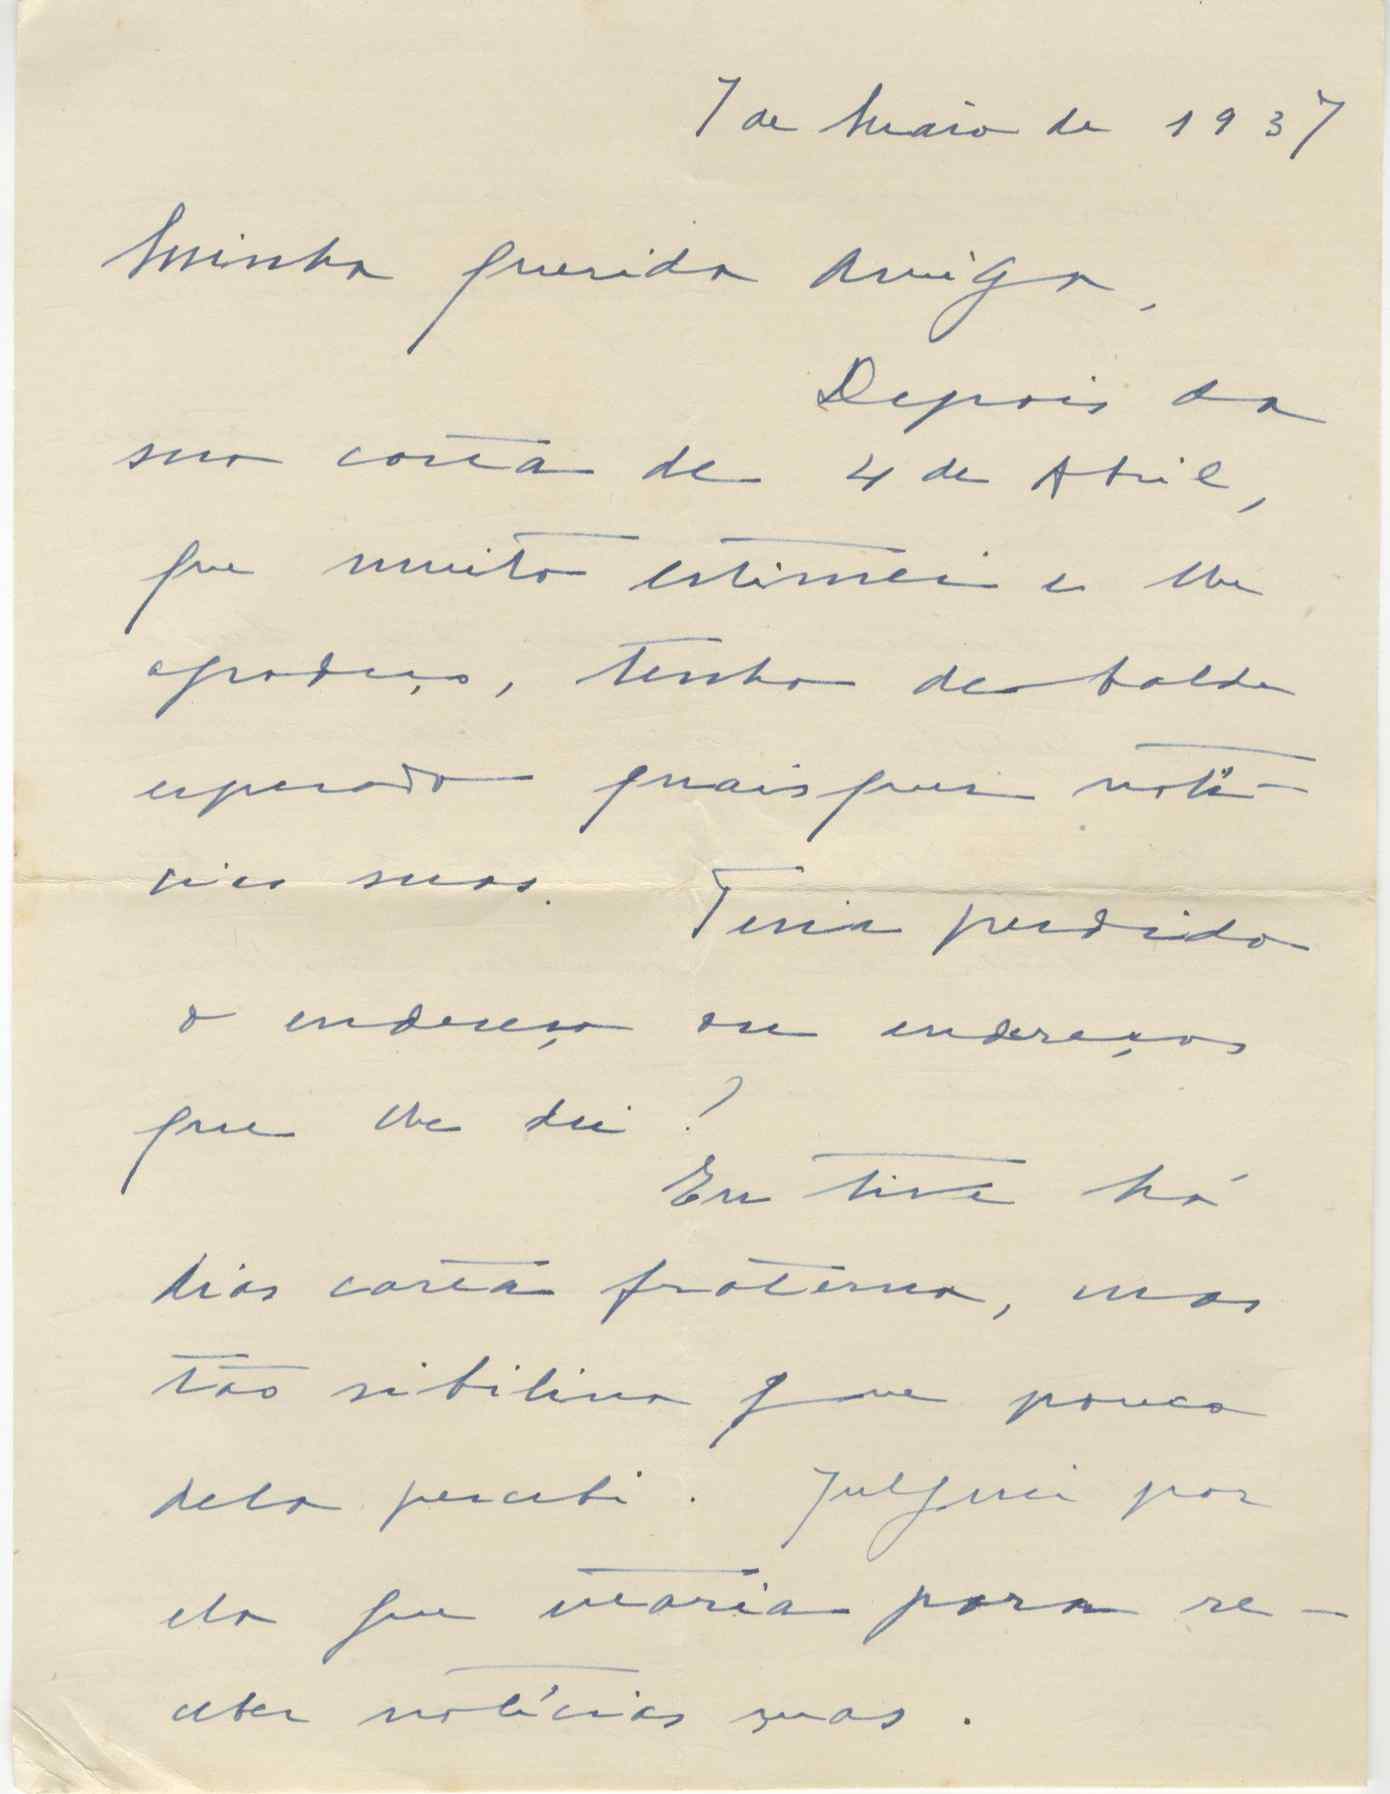 7 de Maio de 1937
Minha querida Amiga,
Depois da
sua carta de 4 de Abril,
que muito estimei e lhe
agradeço, tenho debalde
esperado quaisquer notí-
cias suas. Teria perdido
o endereço ou endereços
que lhe dei?
Eu tive há
dias carta fraterna, mas
tão sibilina que pouco
dela percebi. Julguei por
ela que estaria para re-
ceber notícias suas.